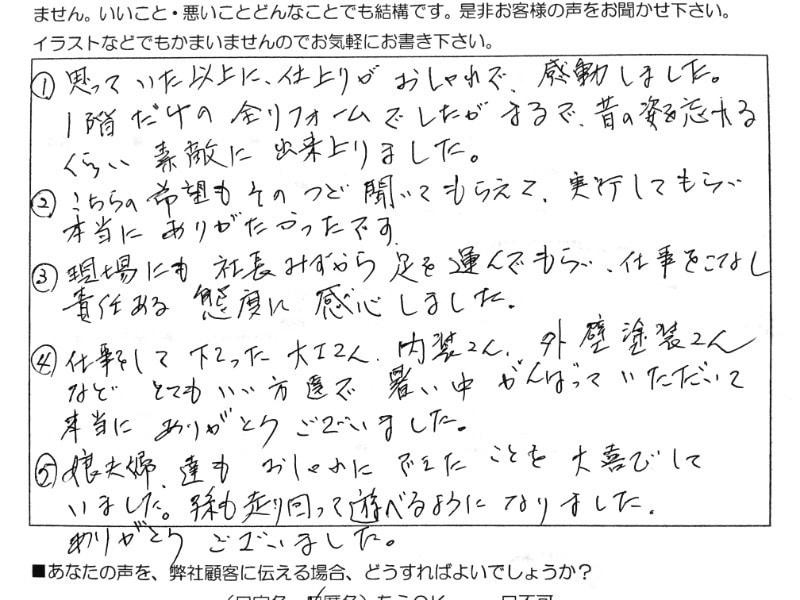 ません。いいこと・悪いことどんなことでも結構です。是非お客様の声をお聞かせ下さい。
イラストなどでもかまいませんのでお気軽にお書き下さい。
①思っていた以上に、仕上りがおしゃれで、感動しました。
1階だけの全リフォームでしたがまるで、昔の姿を忘れる
くらい素敵に出来上りました。
②こちらの希望もそのつど聞いてもらえて、実行してもらい
本当にありがたかったです。
③現場にも社長みずから足を運んでもらい、仕事をこなし
責任ある態度に感心しました。
④仕事をして下さった大工さん、内装さん、外壁塗装さん
などとてもいい方達で暑い中がんばっていただいて
本当にありがとうございました。
⑤娘夫婦達もおしゃれにできたことを大喜びして
いました。孫も走り回って遊べるようになりました。
ありがとうございました。
■あなたの声を、弊社顧客に伝える場合、どうすればよいでしょうか?